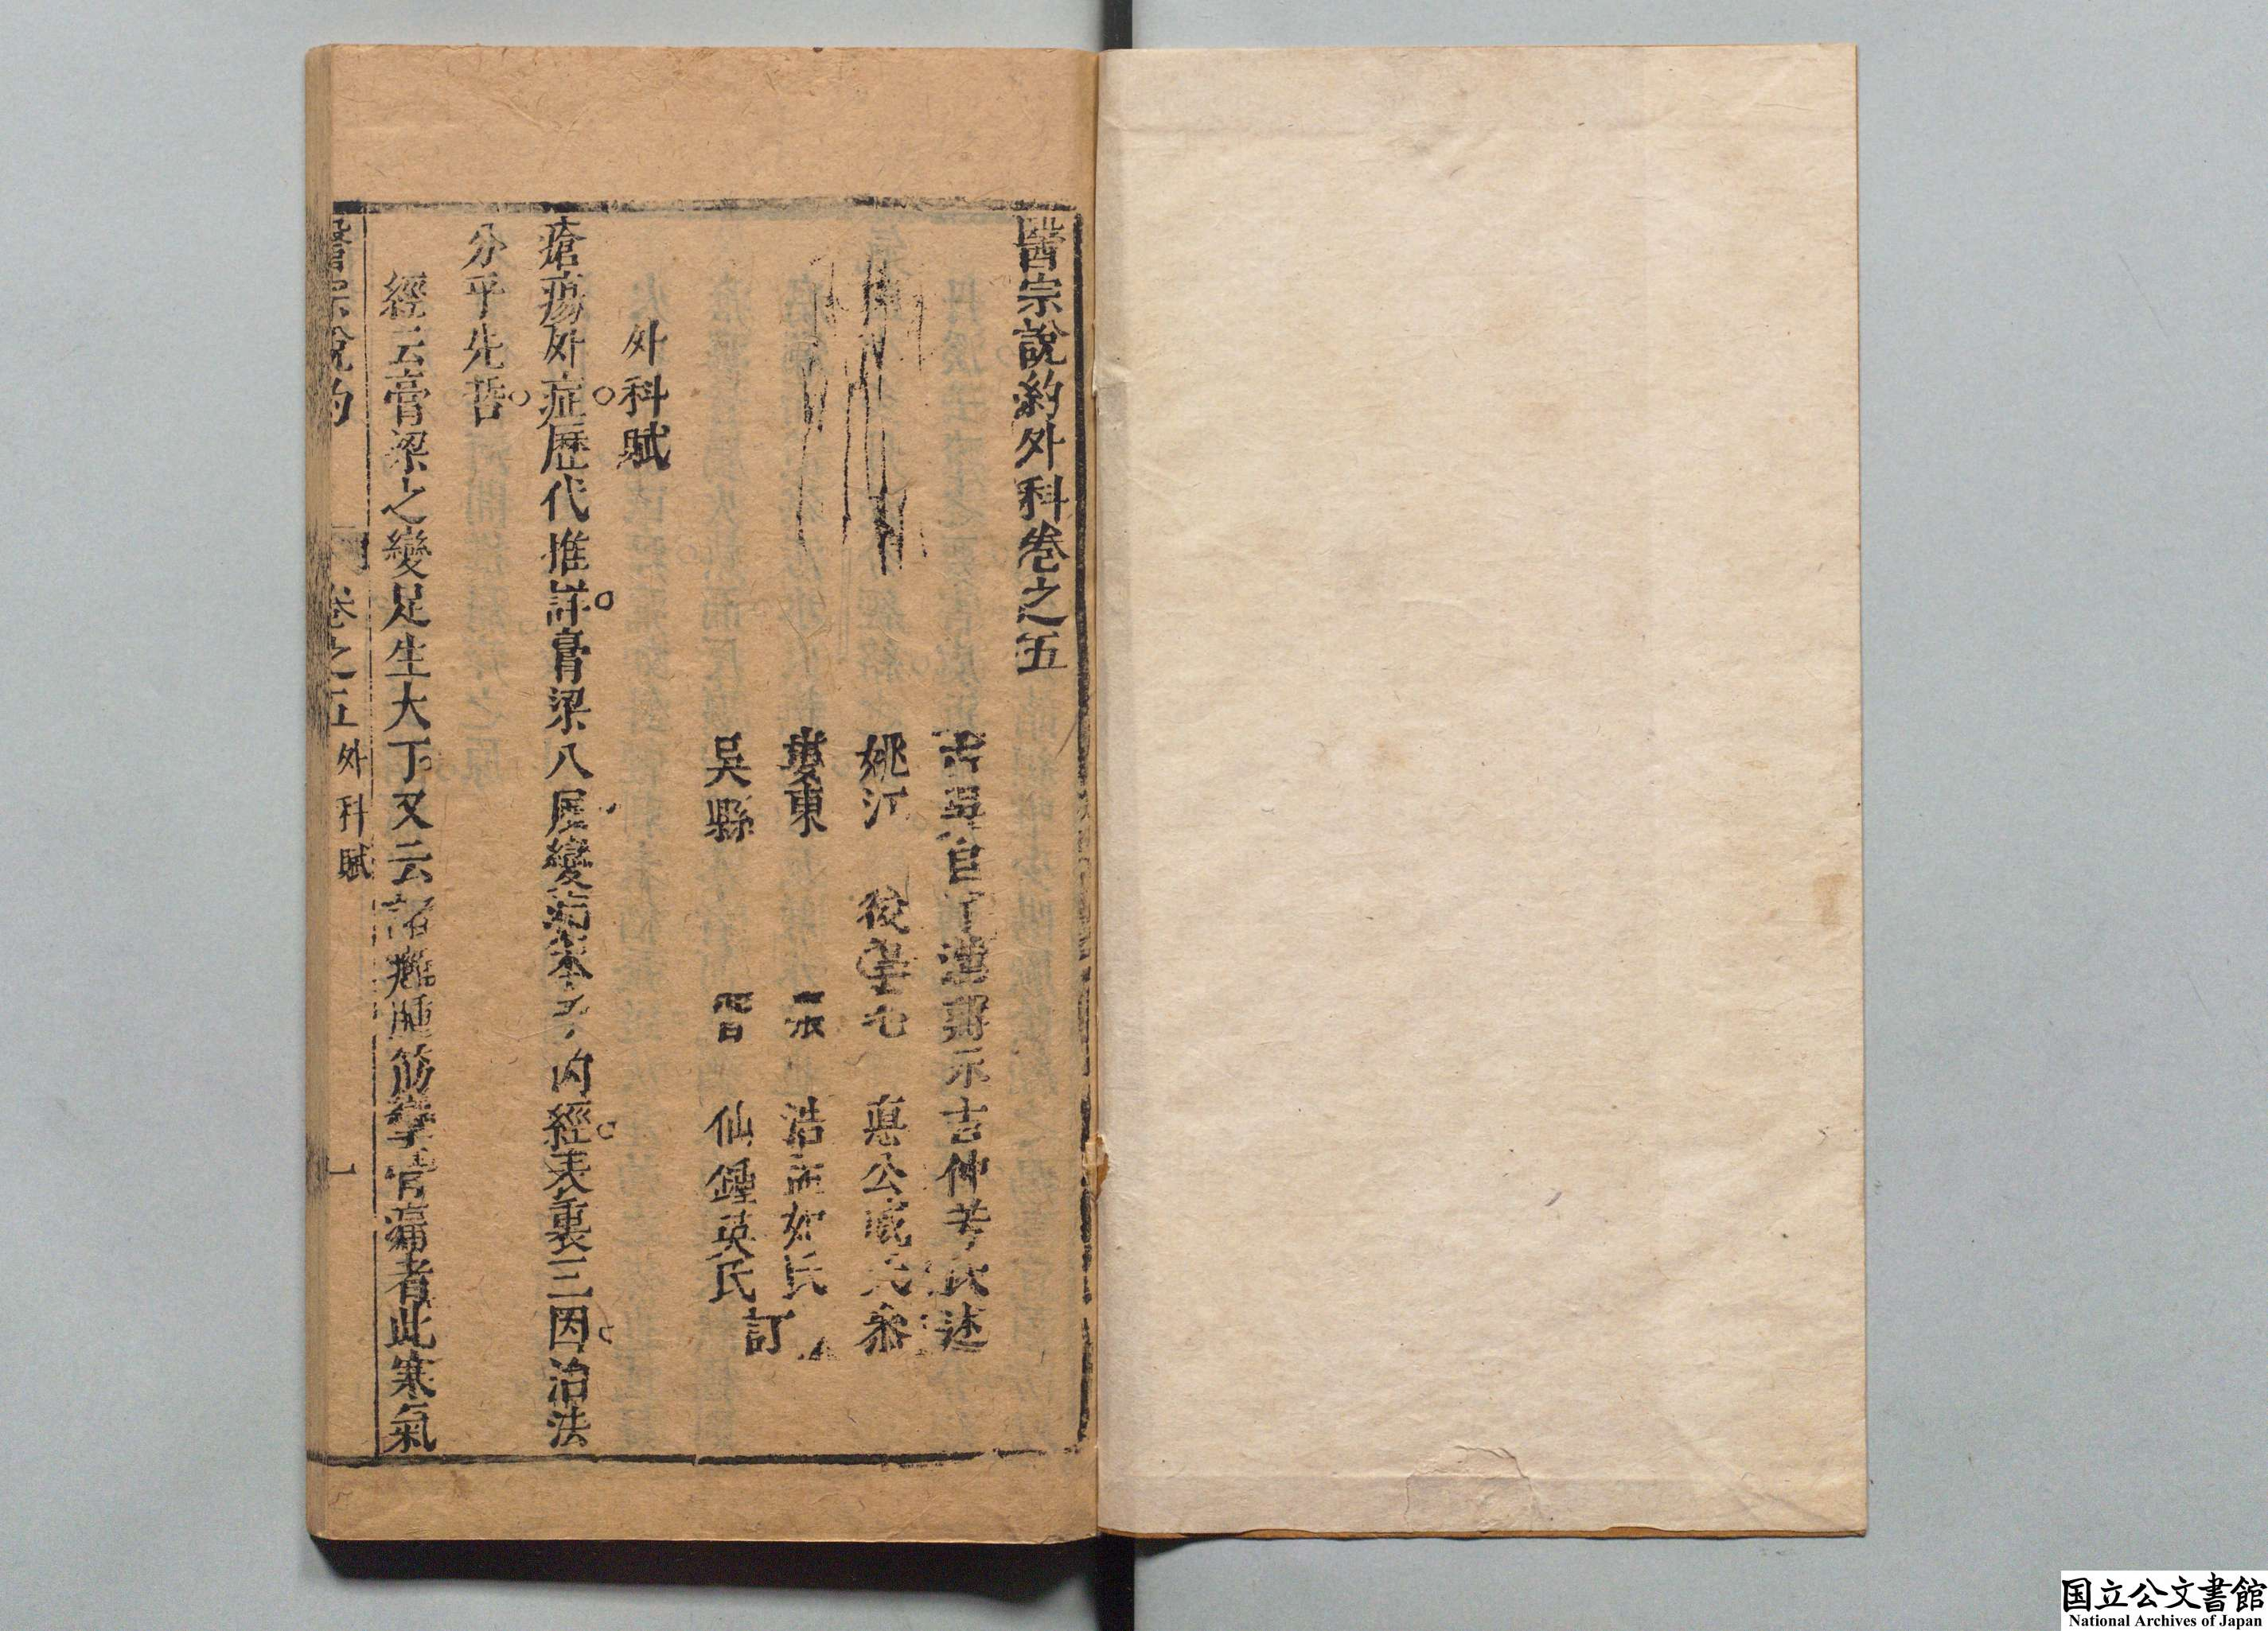 醫宗說約外科卷之五
古吳自了漢蔣示吉仲芳氏述
姚江 後學 公 氏叅
婁東 張 浩 如氏
吳縣 晋 仙鍾英氏
訂
外科賦
瘡瘍外症歷代推詳膏梁 變 內經表裏三因治法
分乎先哲
經云膏梁之變足生大丁又云諸癰腫筋攣骨痛者此寒氣
醫宗說約 卷之五 外科賦 一
国立公文書館
National Archives of Japan